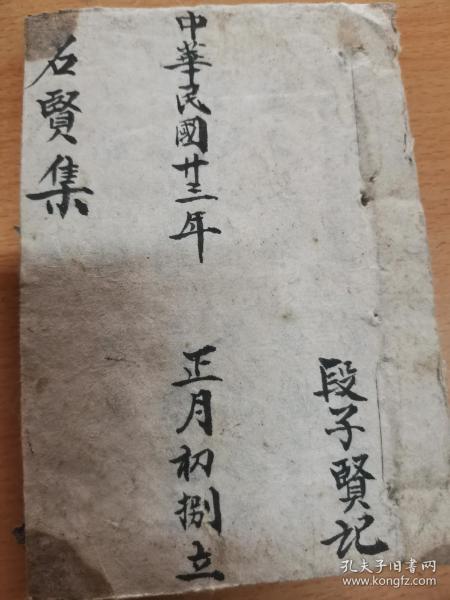 段子賢記
中華民國廿三年 正月初捌立
石賢集
孔夫子旧书网
www.kongfz.com